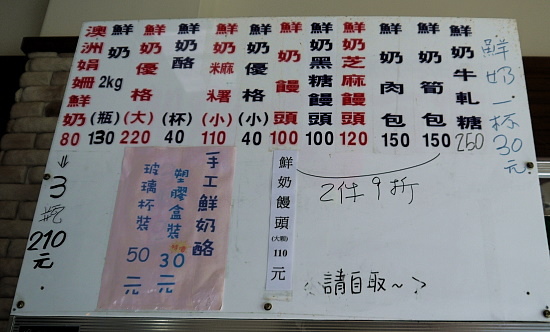 澳洲娟姍鮮奶 80
鮮奶 2kg (瓶) 130
鮮奶優格 (大) 220
鮮奶酪 (杯) 40
鮮奶麻糬 (小) 110
鮮奶優格 (小) 40
鮮奶饅頭 100
鮮奶黑糖饅頭 100
鮮奶芝麻饅頭 120
鮮奶肉包 150
鮮奶筍包 150
鮮奶牛軋糖 250
鮮奶一杯30元
↓3瓶210元
手工鮮奶酪
塑膠盒裝 30元
玻璃杯裝 50元
鮮奶饅頭(大顆)110元
2件9折
請自取~>